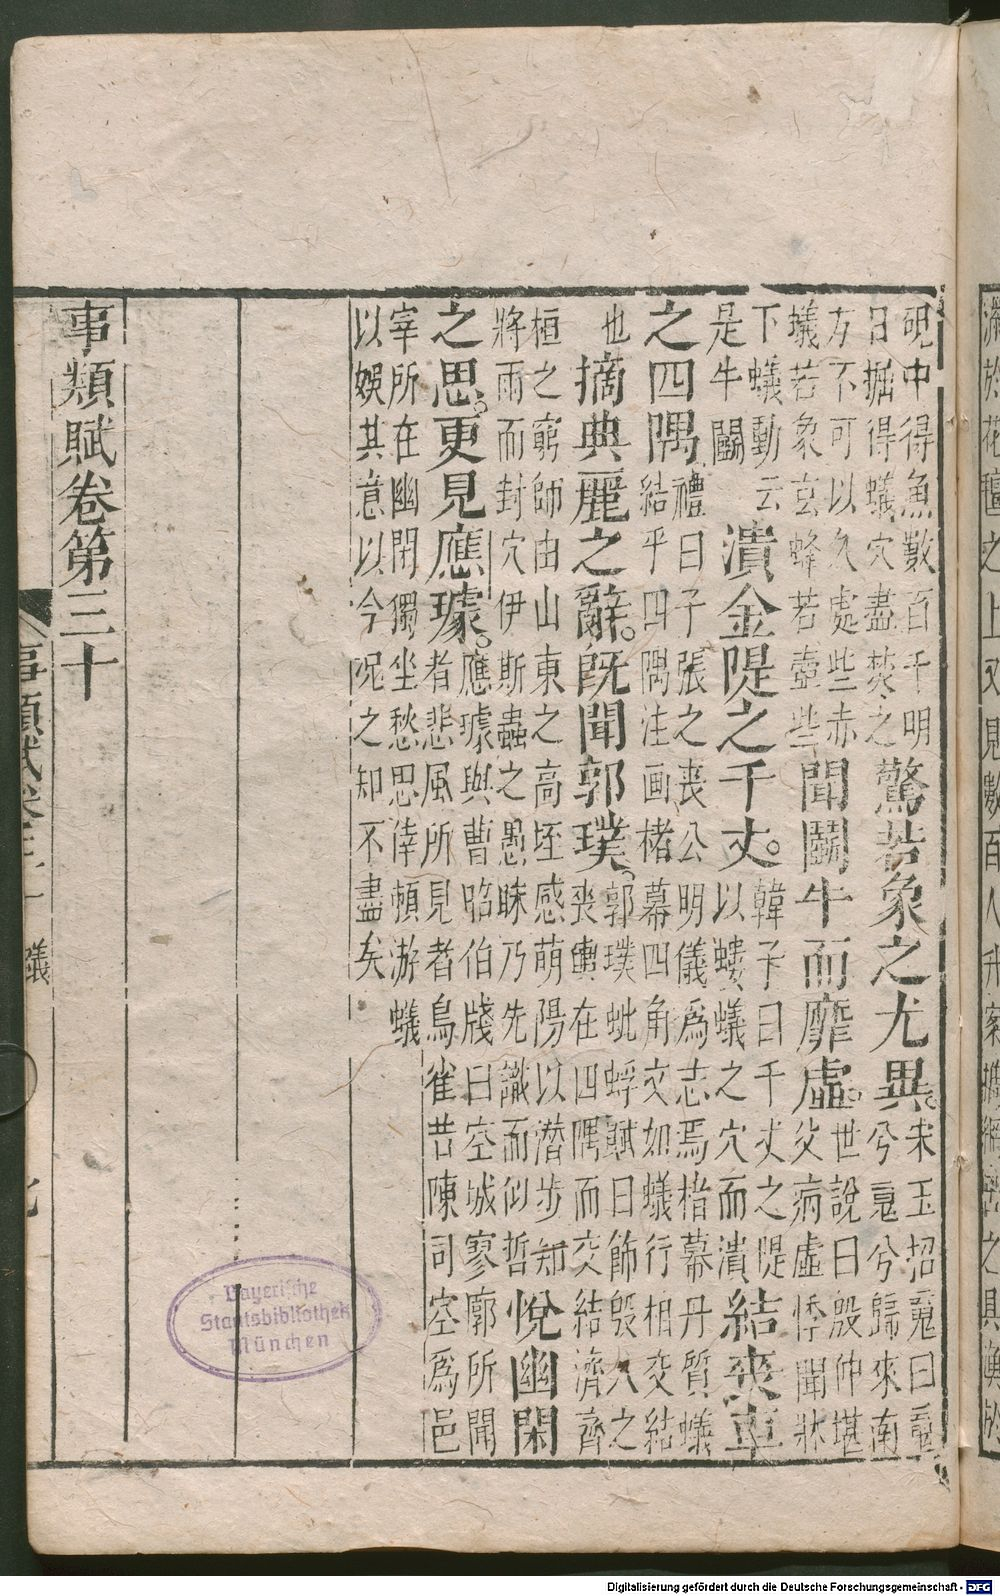 硯中得魚數百千明
日掘得蟻穴盡焚之
驚若象之尤異。
宋玉招䰟曰䰟
兮䰟兮歸來南
方不可以久處些赤
蟻若象玄蜂若壺些
聞鬭牛而靡虛。
世說曰殷仲堪
父病虛悸聞牀
下蟻動云
是牛鬭
潰金隄之千丈。
韓子曰千丈之隄
以螻蟻之穴而潰
結喪車
之四隅
禮曰子張之喪公明儀爲志焉楮幕丹質蟻
結乎四隅注画楮幕四角交如蟻行相交結
也
摛典麗之辭。旣聞郭璞。
郭璞蚍蜉賦曰飾殷人之
喪輿在四隅而交結濟齊
桓之窮師由山東之高垤感萌陽以潜步知
將雨而封穴伊斯蟲之愚昧乃先識而似哲
悅幽閑
之思。更見應璩。
應璩與曹昭伯牋曰空城寥廓所聞
者悲風所見者鳥雀昔陳司空爲邑
宰所在幽閉獨坐愁思倖頼游蟻
以娛其意以今况之知不盡矣
事類賦卷第三十
事類賦卷三十 蟻
Bayerische
Staatsbibliothek
München
Digitalisierung gefördert durch die Deutsche Forschungsgemeinschaft - DFG